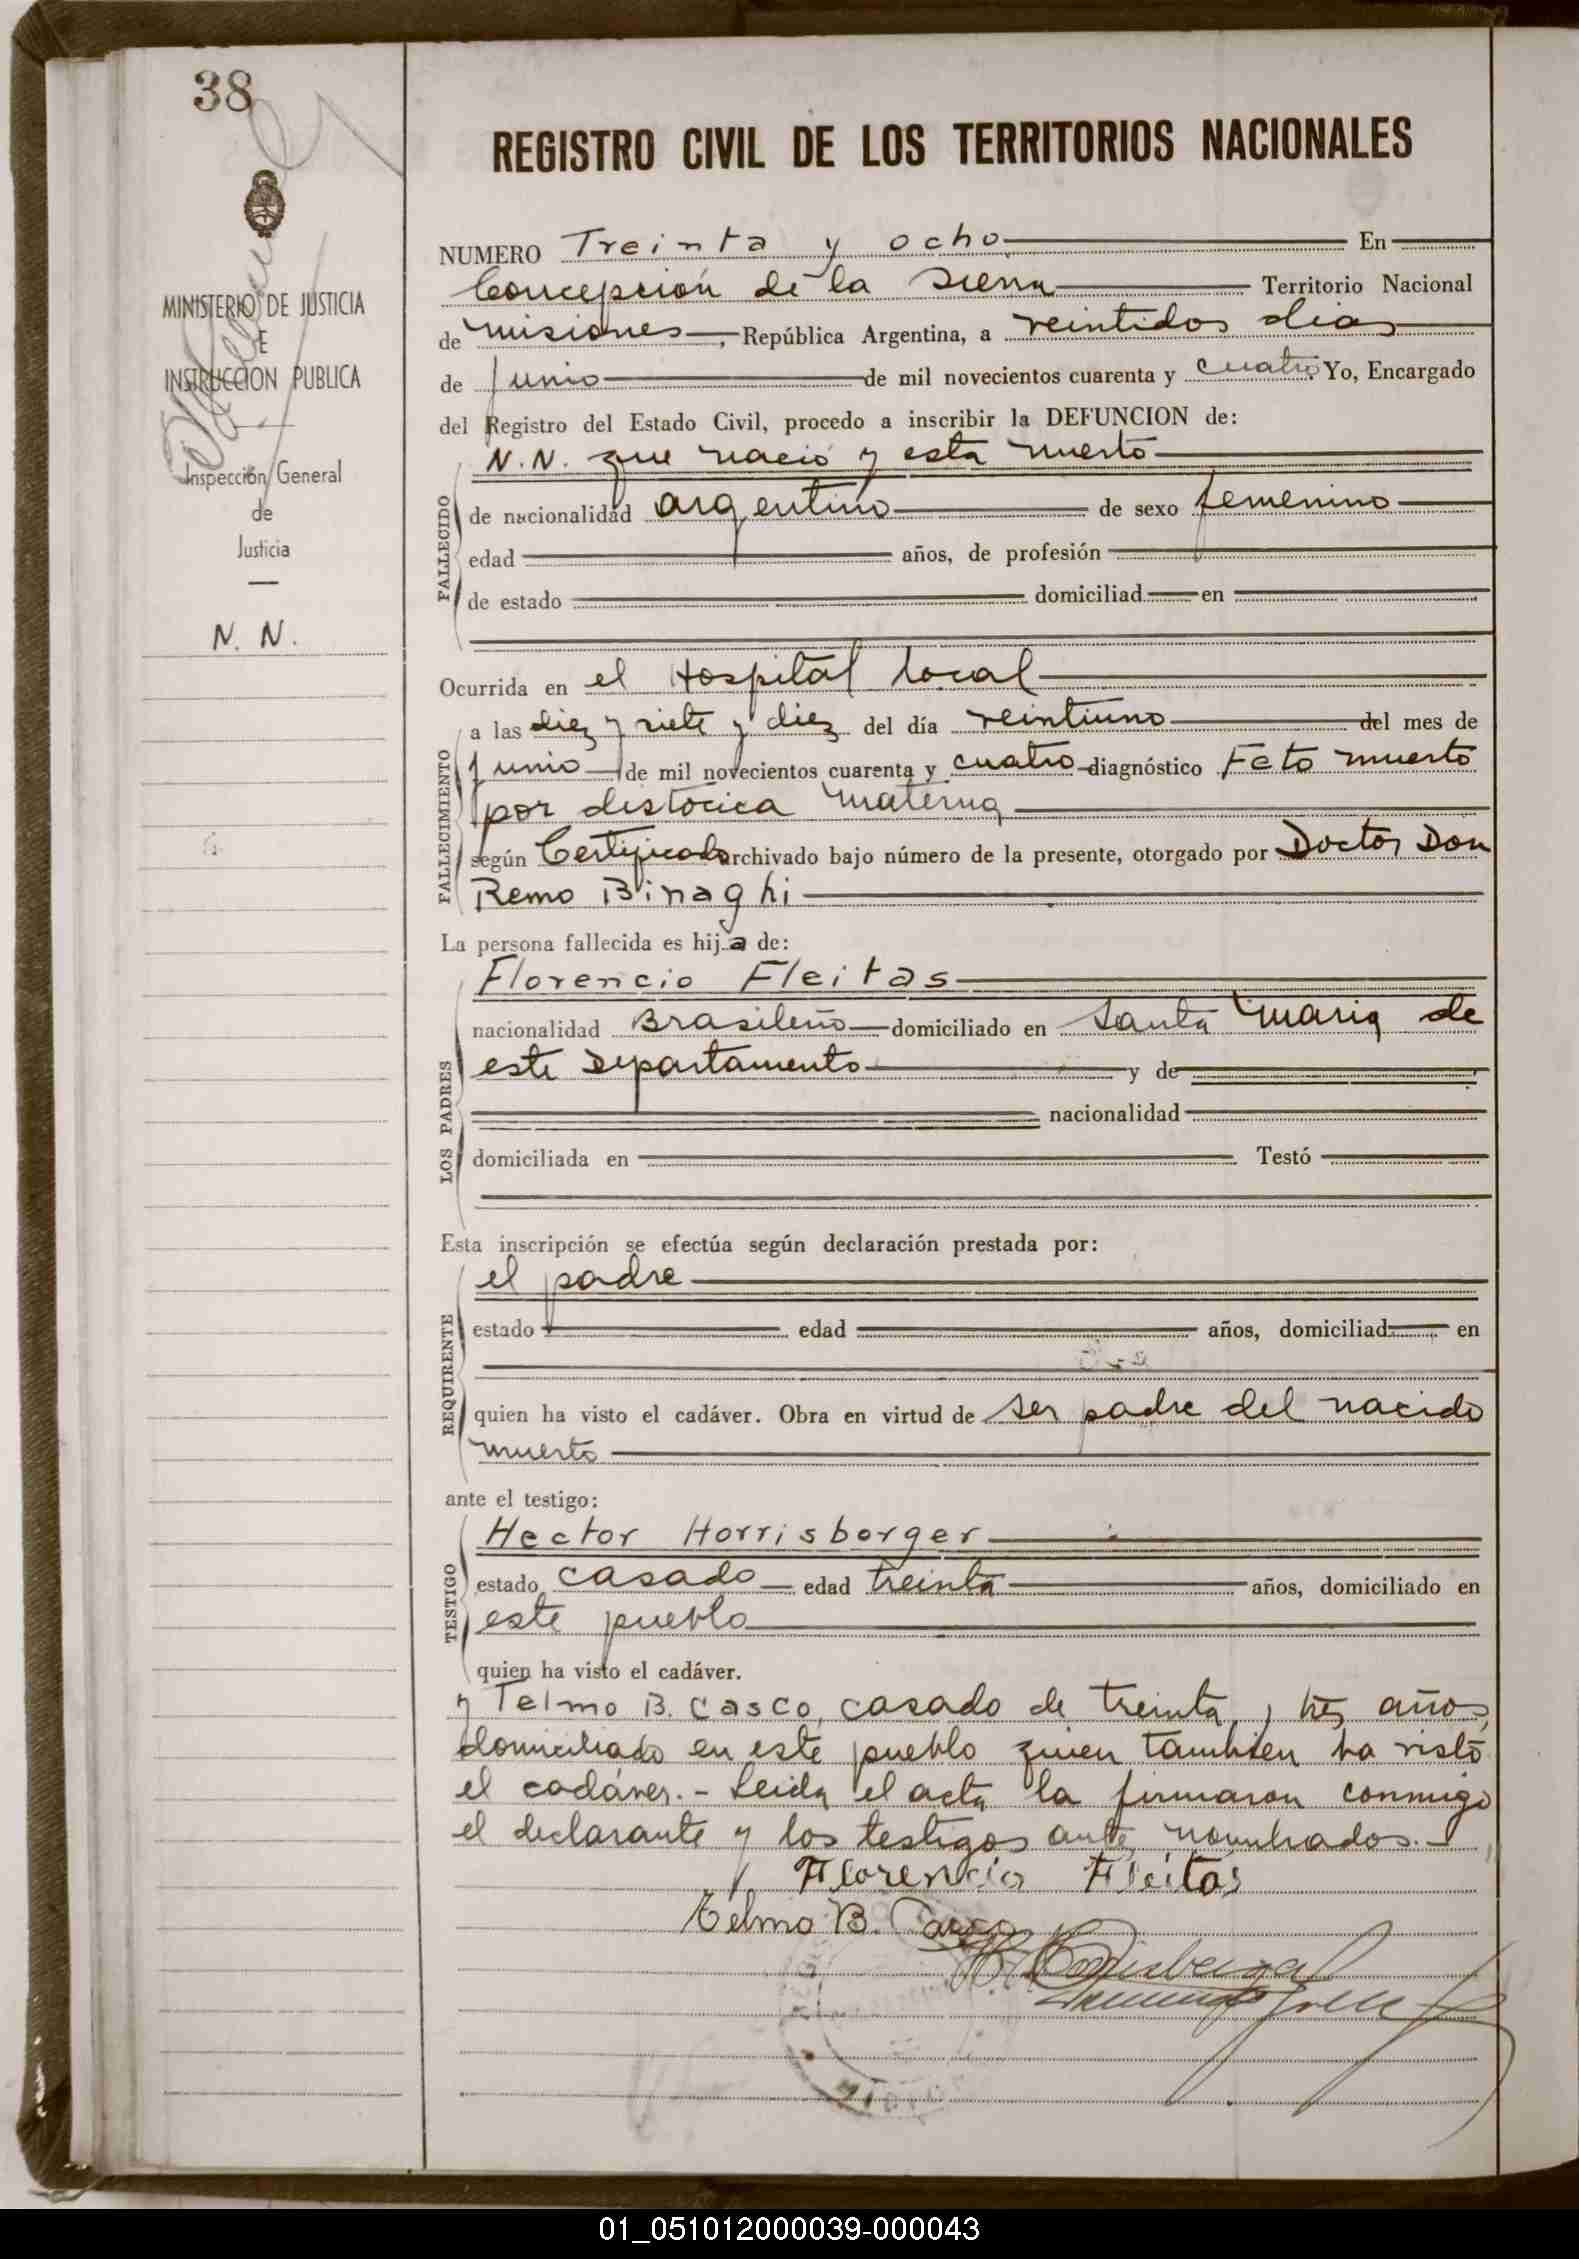 38
REGISTRO CIVIL DE LOS TERRITORIOS NACIONALES
MINISTERIO DE JUSTICIA
E
INSTRUCCION PUBLICA
Inspección General
de
Justicia
N. N.
NUMERO Treinta y ocho En
Concepción de la Sierra Territorio Nacional
de misiones, República Argentina, a veintidos dias
de Junio de mil novecientos cuarenta y cuatro. Yo, Encargado
del Registro del Estado Civil, procedo a inscribir la DEFUNCION de:
N.N. que nació y esta muerto
FALLECIDO
de nacionalidad argentino de sexo femenino
edad años, de profesión
de estado domiciliad en
Ocurrida en el Hospital local
FALLECIMIENTO
a las diez y siete y diez del día veintiuno del mes de
Junio de mil novecientos cuarenta y cuatro diagnóstico Feto muerto
por distocica materna
según Certificado archivado bajo número de la presente, otorgado por Doctor Don
Remo Binaghi
La persona fallecida es hija de:
LOS PADRES
Florencio Fleitas
nacionalidad Brasileño domiciliado en Santa Maria de
este Departamento y de
nacionalidad
domiciliada en Testó
Esta inscripción se efectúa según declaración prestada por:
REQUIRENTE
el padre
estado edad años, domiciliad en
quien ha visto el cadáver. Obra en virtud de ser padre del nacido
muerto
ante el testigo:
TESTIGO
Hector Horrisberger
estado casado edad treinta años, domiciliado en
este pueblo
quien ha visto el cadáver.
y Telmo B. Casco, casado de treinta y tres años,
domiciliado en este pueblo quien tambien ha visto
el cadáver.- Leida el acta la firmaron conmigo
el declarante y los testigos ante nombrados.-
Florencio Fleitas
Telmo B. Casco
01_051012000039-000043